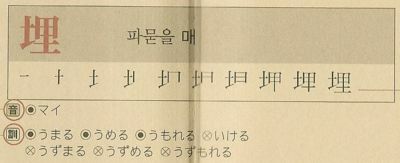 埋 파묻을 매
一 十 土 埋
音 ◉マイ
訓 ◉うまる ◉うめる ◉うもれる ⊗いける
⊗うずまる ⊗うずめる ⊗うずもれる